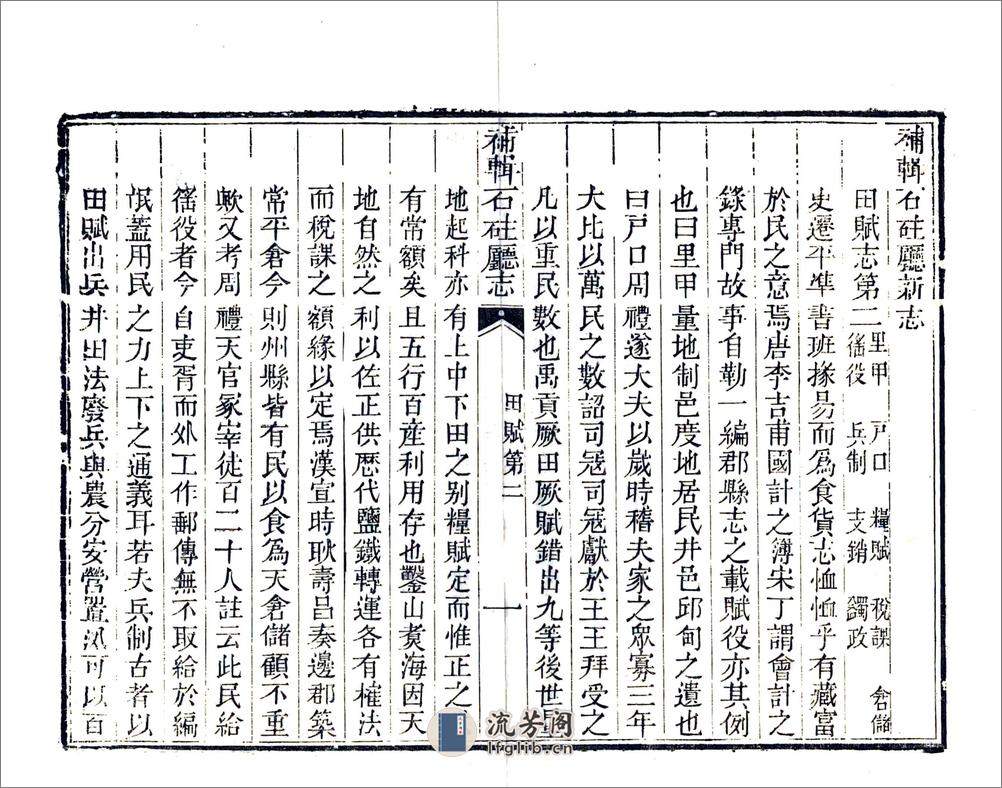 補輯石砫廳新志
田賦志第二 里甲 戸口 糧賦 税課 倉儲
徭役 兵制 支銷 蠲政
史遷平準書班掾易而為食貨志恤恤乎有藏富
於民之意焉唐李吉甫國計之簿宋丁謂會計之
錄專門故事自勒一編郡縣志之載賦役亦其例
也曰里甲量地制邑度地居民井邑邱甸之遺也
曰戸口周禮遂大夫以歲時稽夫家之眾寡三年
大比以萬民之數詔司冦司冦獻於王王拜受之
凡以重民數也禹貢厥田厥賦錯出九等後世量
補輯石砫廳志 田賦第二 一
地起科亦有上中下田之别糧賦定而惟正之
有常額矣且五行百産利用存也鑿山煑海因天
地自然之利以佐正供歴代鹽鐵轉運各有榷法
而税課之額緣以定焉漢宣時耿壽昌奏邊郡築
常平倉今則州縣皆有民以食為天倉儲顧不重
歟又考周禮天官冢宰徒百二十人註云此民給
徭役者今自吏胥而外工作郵傳無不取給於編
氓蓋用民之力上下之通義耳若夫兵制古者以
田賦出兵井田法廢兵與農分安營置汛可以百
流芳阁
lfglib.cn